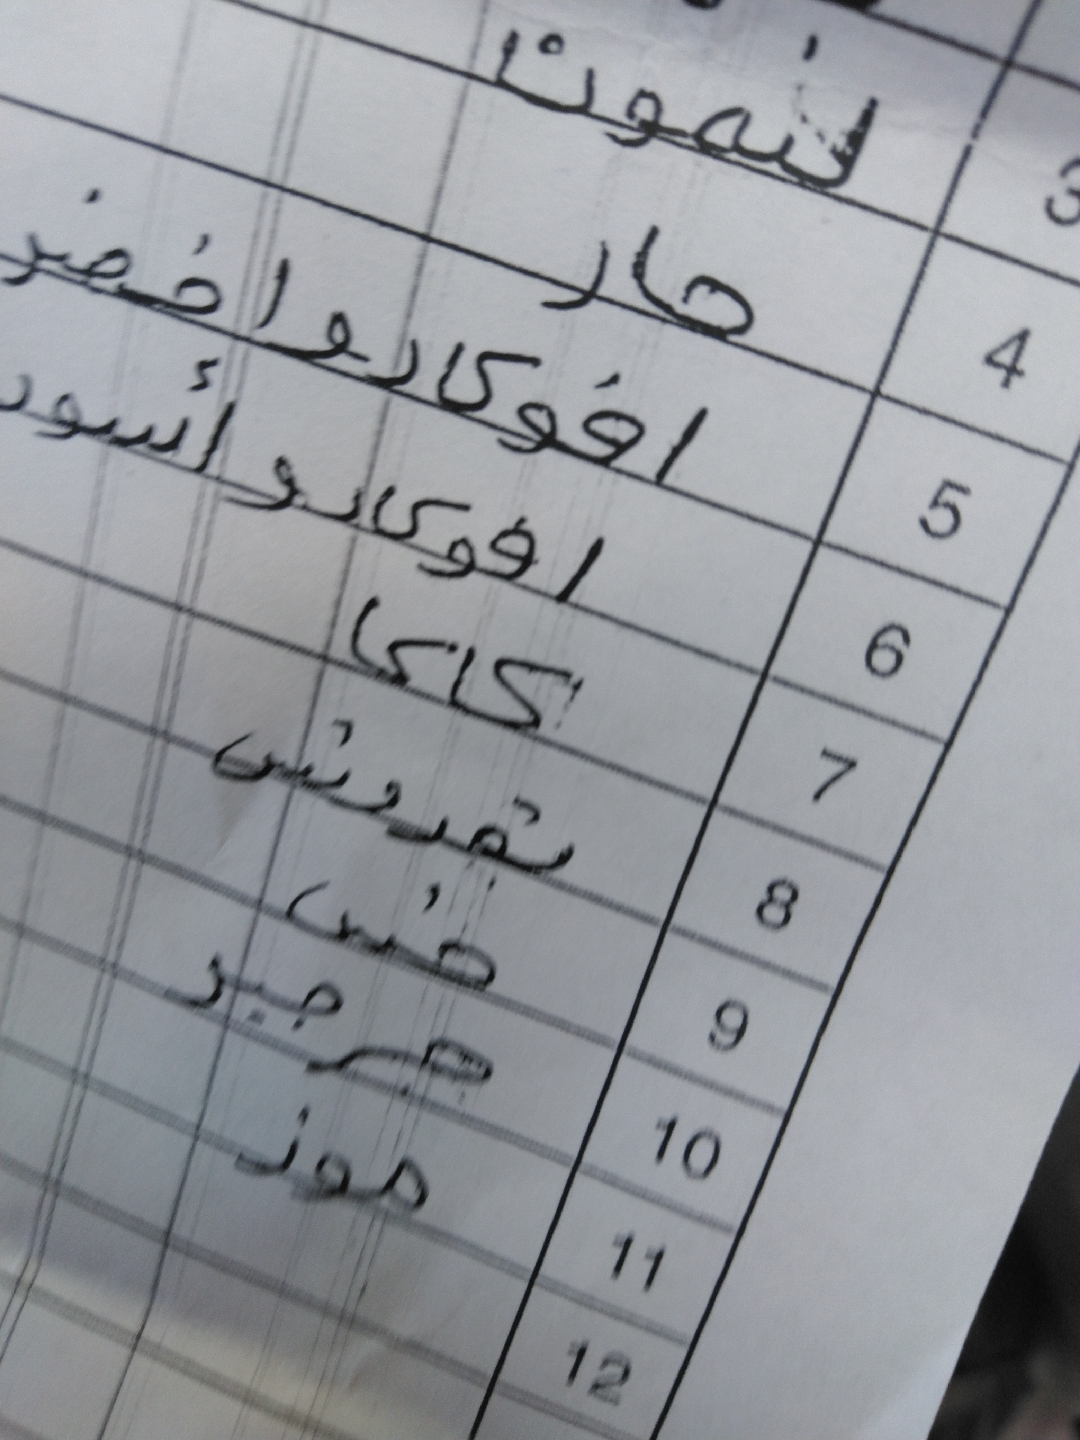 3 لنموت
4 حار
5 افوكادو اخضر
6 افوكادو أسود
7 كاكا
8 بقدونس
9 خس
10 جرجير
11 موز
12